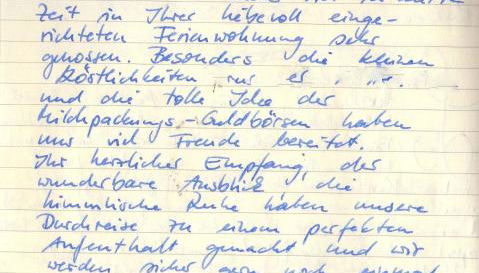 Zeit in Ihrer liebevoll einge-
richteten Ferienwohnung sehr
genossen. Besonders die kleinen
Köstlichkeiten
und die tolle Idee der
Milchpackungs-Geldbörsen haben
uns viel Freude bereitet.
Ihr herzlicher Empfang, der
wunderbare Ausblick, die
himmlische Ruhe haben unsere
Durchreise zu einem perfekten
Aufenthalt gemacht und wir
werden sicher gern noch einmal